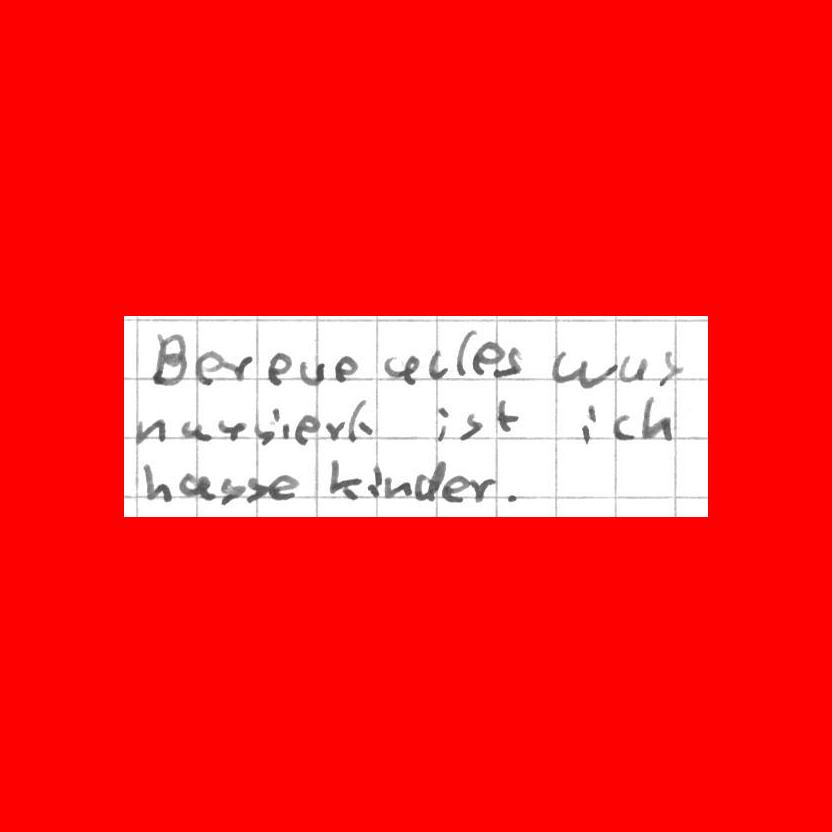 Bereue alles was
passiert ist ich
hasse kinder.